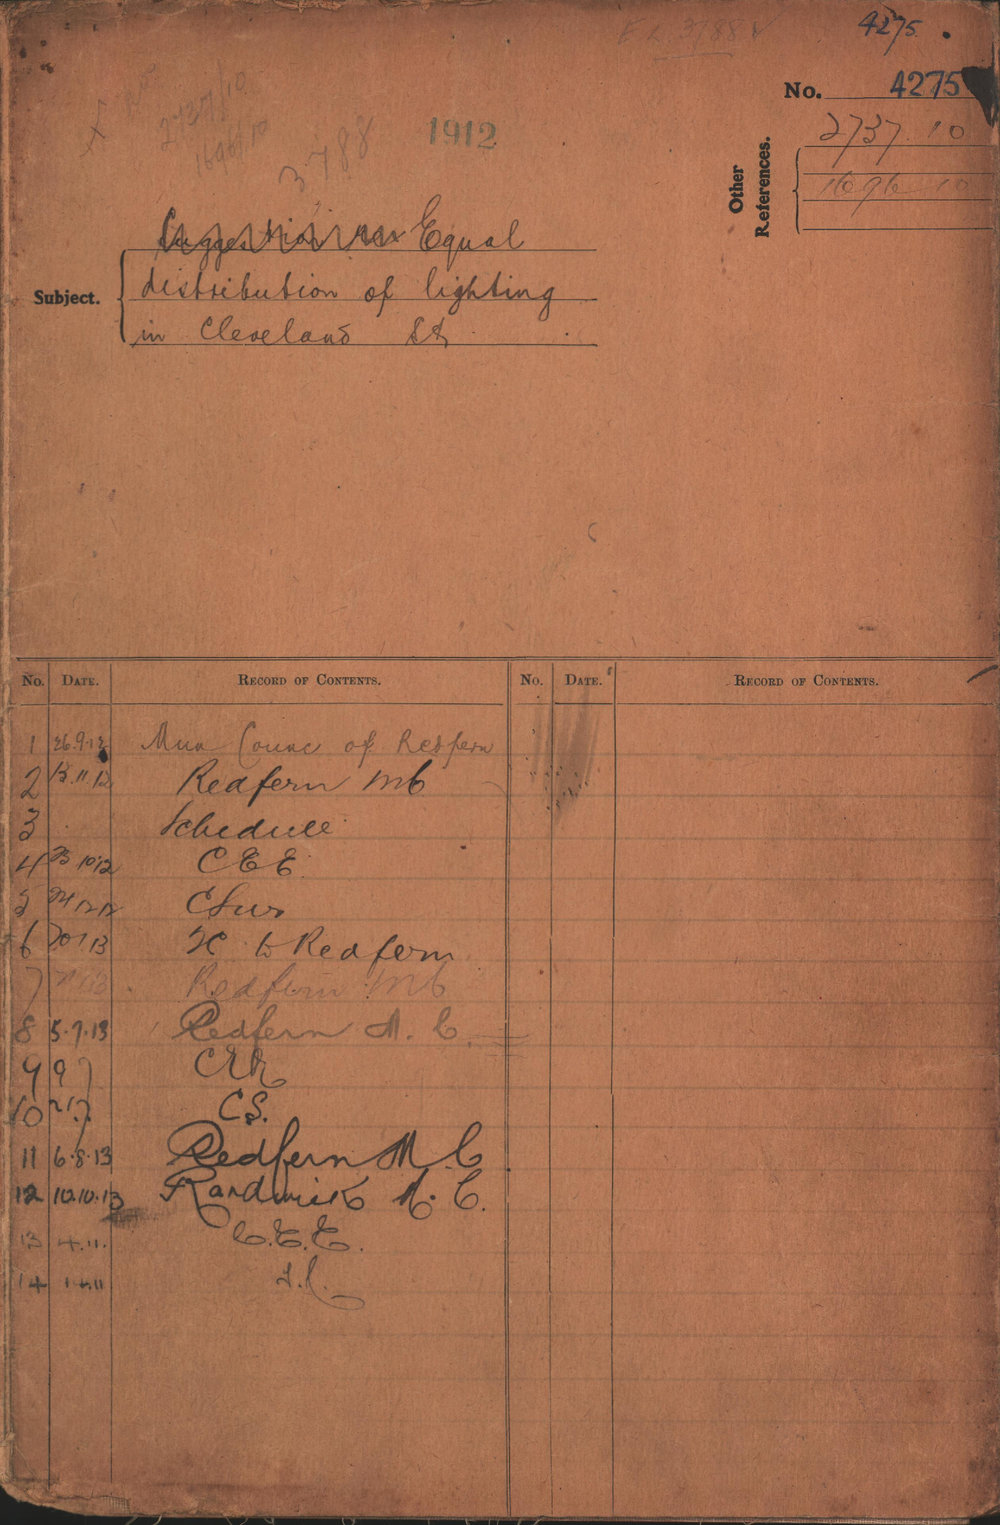 4275
No. 4275
2737/10
1696/10
3788
1912
Other References.
2737.10
1696 10
Suggestion re Equal
Subject. distribution of lighting
in Cleveland St
No. Date. Record of Contents. No. Date. Record of Contents.
1 26.9.12 Mun Counc of Redfern
2 13.11.12 Redfern MC
3 Schedule
4 10.12 CEE
5 12.12 CSur
6 1 13 TC to Redfern
7 Redfern MC
8 5.7.13 Redfern M.C.
9 9 7
10 7 C.S.
11 6.8.13 Redfern M.C.
12 10.10.13 Randwick M.C.
13 4.11. C.E.E.
14 14.11